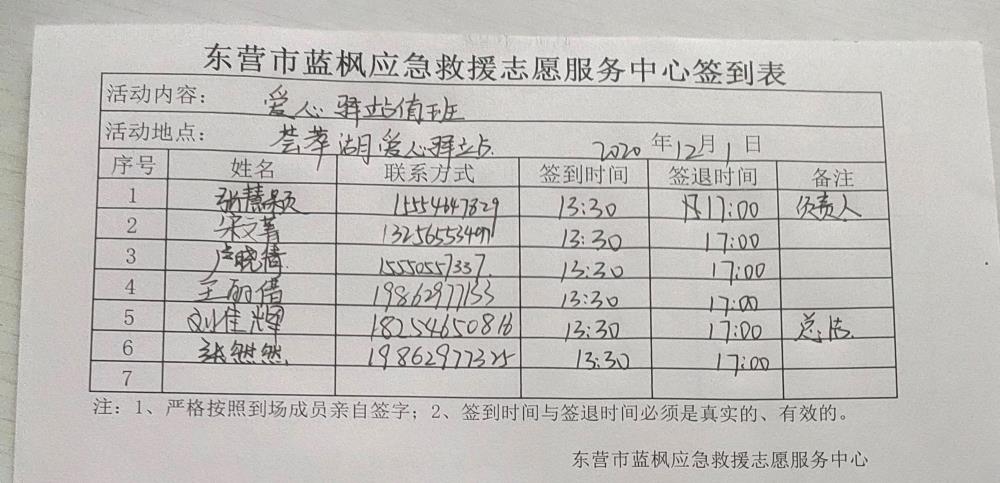 东营市蓝枫应急救援志愿服务中心签到表
活动内容： 爱心驿站值班
活动地点： 荟萃湖爱心驿站 2020年12月1日
序号 姓名 联系方式 签到时间 签退时间 备注
1 张慧颖 15554647829 13:30 17:00 负责人
2 宋文菁 13:30 17:00
3 卢晓倩 15550557337 13:30 17:00
4 王丽倩 19862977133 13:30 17:00
5 刘佳辉 18254650816 13:30 17:00 总结
6 张然然 19862977325 13:30 17:00
7
注：1、严格按照到场成员亲自签字；2、签到时间与签退时间必须是真实的、有效的。
东营市蓝枫应急救援志愿服务中心